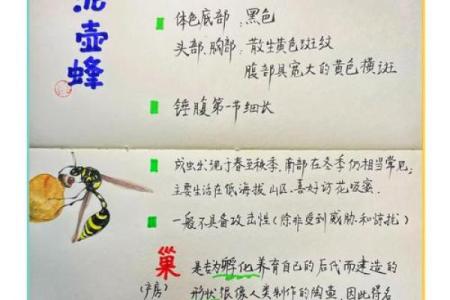 泥壶蜂
体色底部：黑色
头部、胸部：散生黄色斑纹
腹部具宽大的黄色横斑
锤腹第一节细长
成虫出现于春至秋季，南部在冬季仍相当常见，
主要生活在低海拔山区，喜好访花吸蜜.
一般不具备攻击性（除非受到威胁和惊扰）
巢 是专为孵化养育自己的后代而建造的
（产房） 形状很像人类制作的陶壶，因此得名